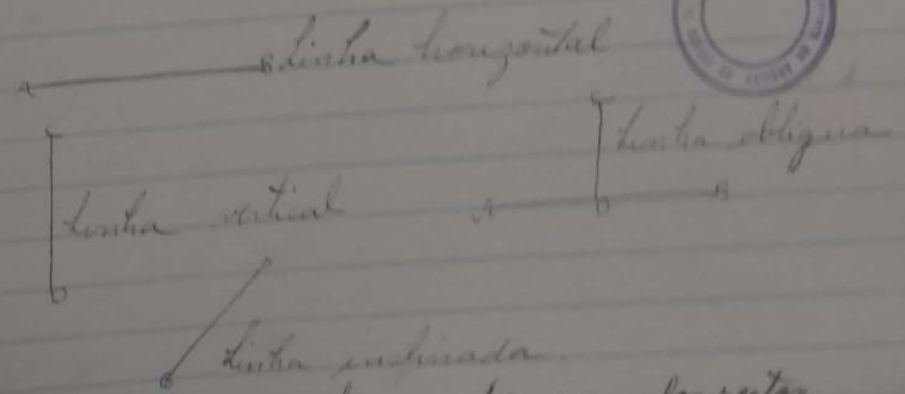 A B Linha horizontal
Linha obliqua
Linha vertical
A D B
D
Linha inclinada